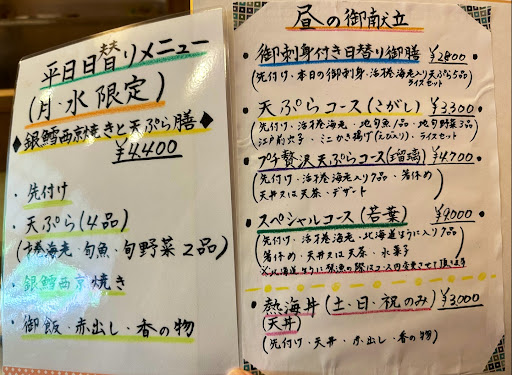 平日日替りメニュー
(月・水 限定)
◆銀鱈西京焼きと天ぷら膳◆
¥4,400
・先付け
・天ぷら(4品)
(才巻海老・旬魚・旬野菜2品)
・銀鱈西京焼き
・御飯・赤出し・香の物
昼の御献立
・御刺身付き日替り御膳 ¥2800
(先付け・本日の御刺身・活才巻海老入り天ぷら5品)
ライスセット
・天ぷらコース(さがし) ¥3300
(先付け・活才巻海老・地旬魚1品・地旬野菜3品)
江戸前穴子・ミニかき揚げ(えび入り)・ライスセット
・プチ贅沢天ぷらコース(瑠璃) ¥4,700
(先付け・活才巻海老入り7品・箸休め)
天丼又は天茶・デザート
・スペシャルコース(若葉) ¥9000
(先付け・活才巻海老・北海道ほうに入り7品)
箸休め・天丼又は天茶・水菓子
・熱海丼(土・日・祝のみ) ¥3,000
(天丼)
(先付け・天丼・赤出し・香の物)